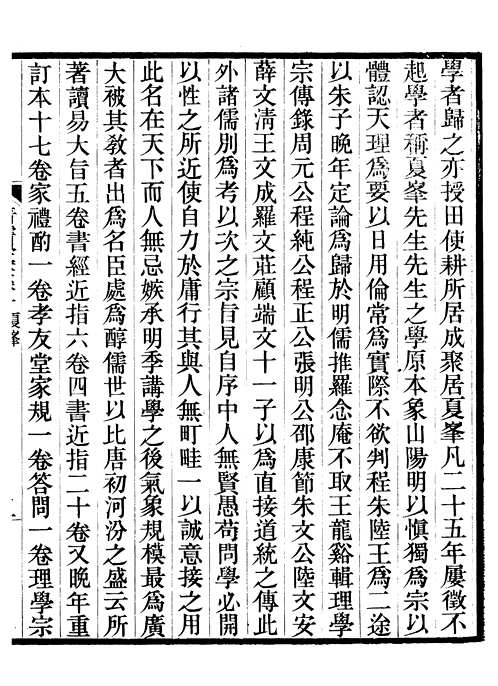 學者歸之亦授田使耕所居成聚居夏峯凡二十五年屢徵不
起學者稱夏峯先生先生之學原本象山陽明以愼獨爲宗以
體認天理爲要以日用倫常爲實際不欲判程朱陸王爲二途
以朱子晚年定論爲歸於明儒推羅念庵不取王龍谿輯理學
宗傳錄周元公程純公程正公張明公邵康節朱文公陸文安
薛文淸王文成羅文莊顧端文十一子以爲直接道統之傳此
外諸儒別爲考以次之宗旨見自序中人無賢愚苟問學必開
以性之所近使自力於庸行其與人無町畦一以誠意接之用
此名在天下而人無忌嫉承明季講學之後氣象規模最爲廣
大被其敎者出爲名臣處爲醇儒世以比唐初河汾之盛云所
著讀易大旨五卷書經近指六卷四書近指二十卷又晚年重
訂本十七卷家禮酌一卷孝友堂家規一卷答問一卷理學宗
夏峰